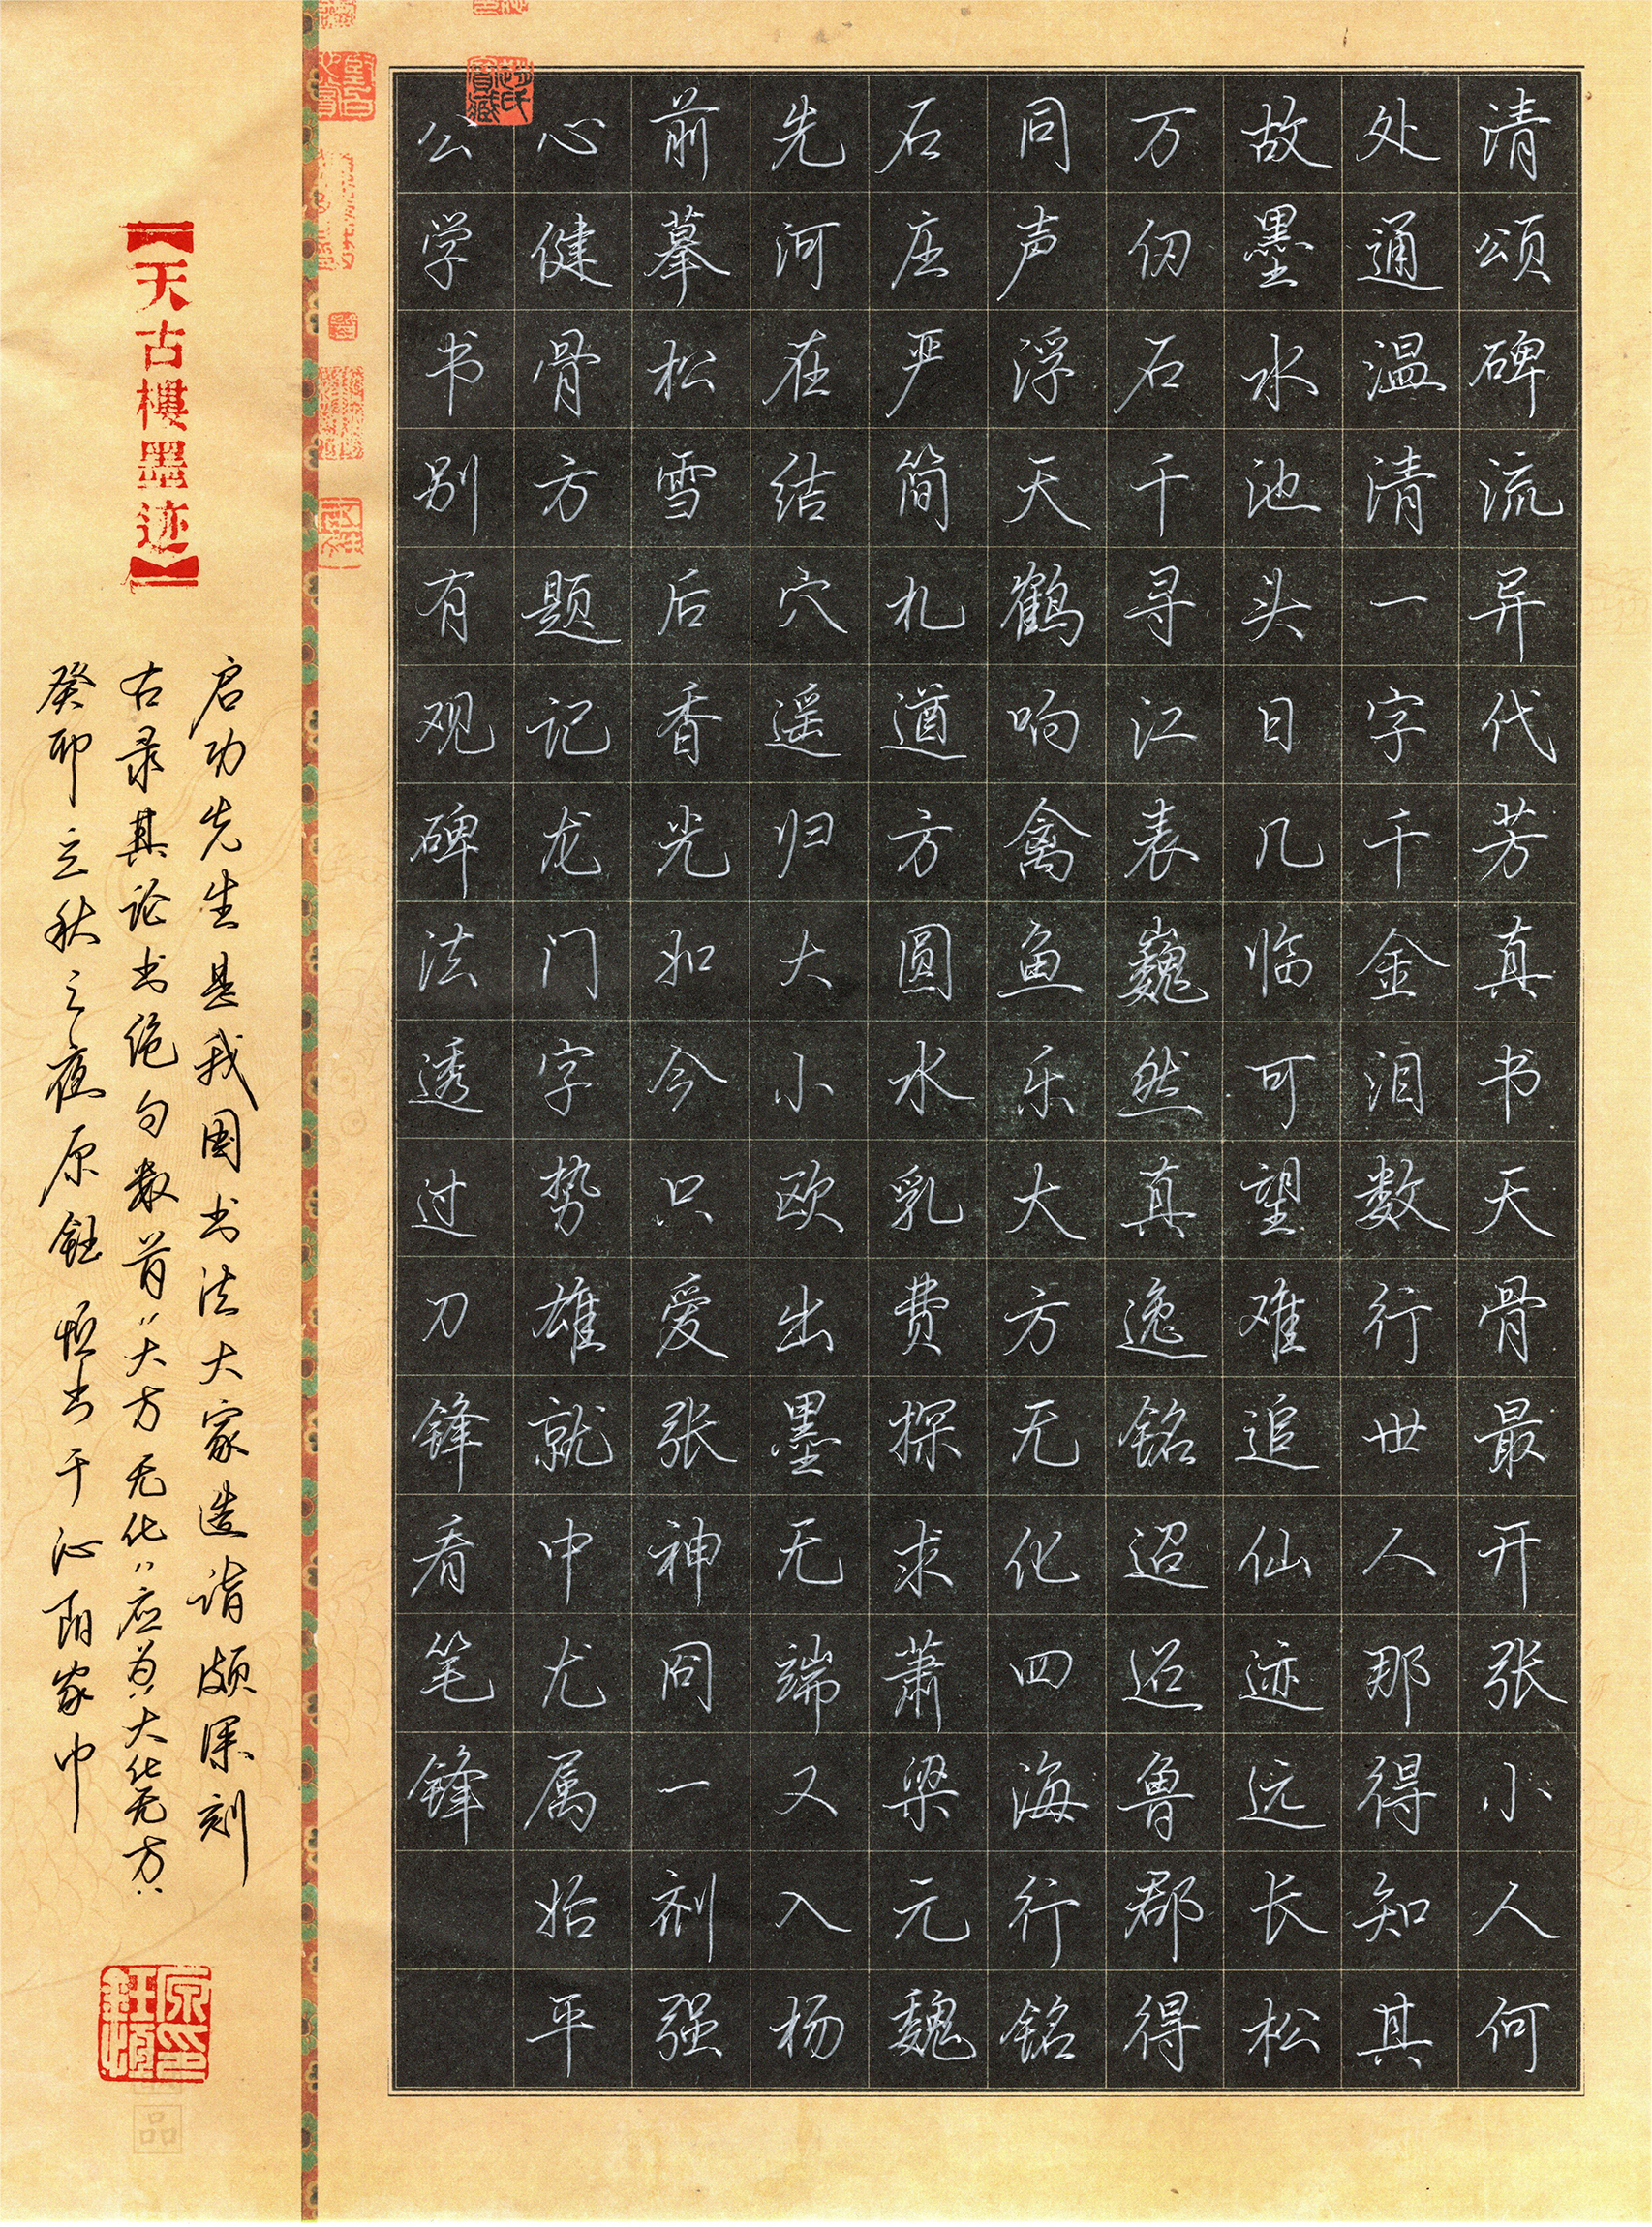 清颂碑流异代芳真书天骨最开张小人何
处通温清一字千金泪数行世人那得知其
故墨水池头日几临可望难追仙迹远长松
万仞石千寻江表巍然真逸铭迢迢鲁郡得
同声浮天鹤响禽鱼乐大方无化四海行铭
石庄严简札遒方圆水乳费探求萧梁元魏
先河在结穴遥归大小欧出墨无端又入杨
前摹松雪后香光如今只爱张神冏一剂强
心健骨方题记龙门字势雄就中尤属始平
公学书别有观碑法透过刀锋看笔锋
启功先生是我国书法大家造诣颇深刻
右录其论书绝句数首“大方无化”应为“大化无方”
癸卯立秋之夜原钰恒书于沁阳家中
【天古樓墨迹】
原钰恒印